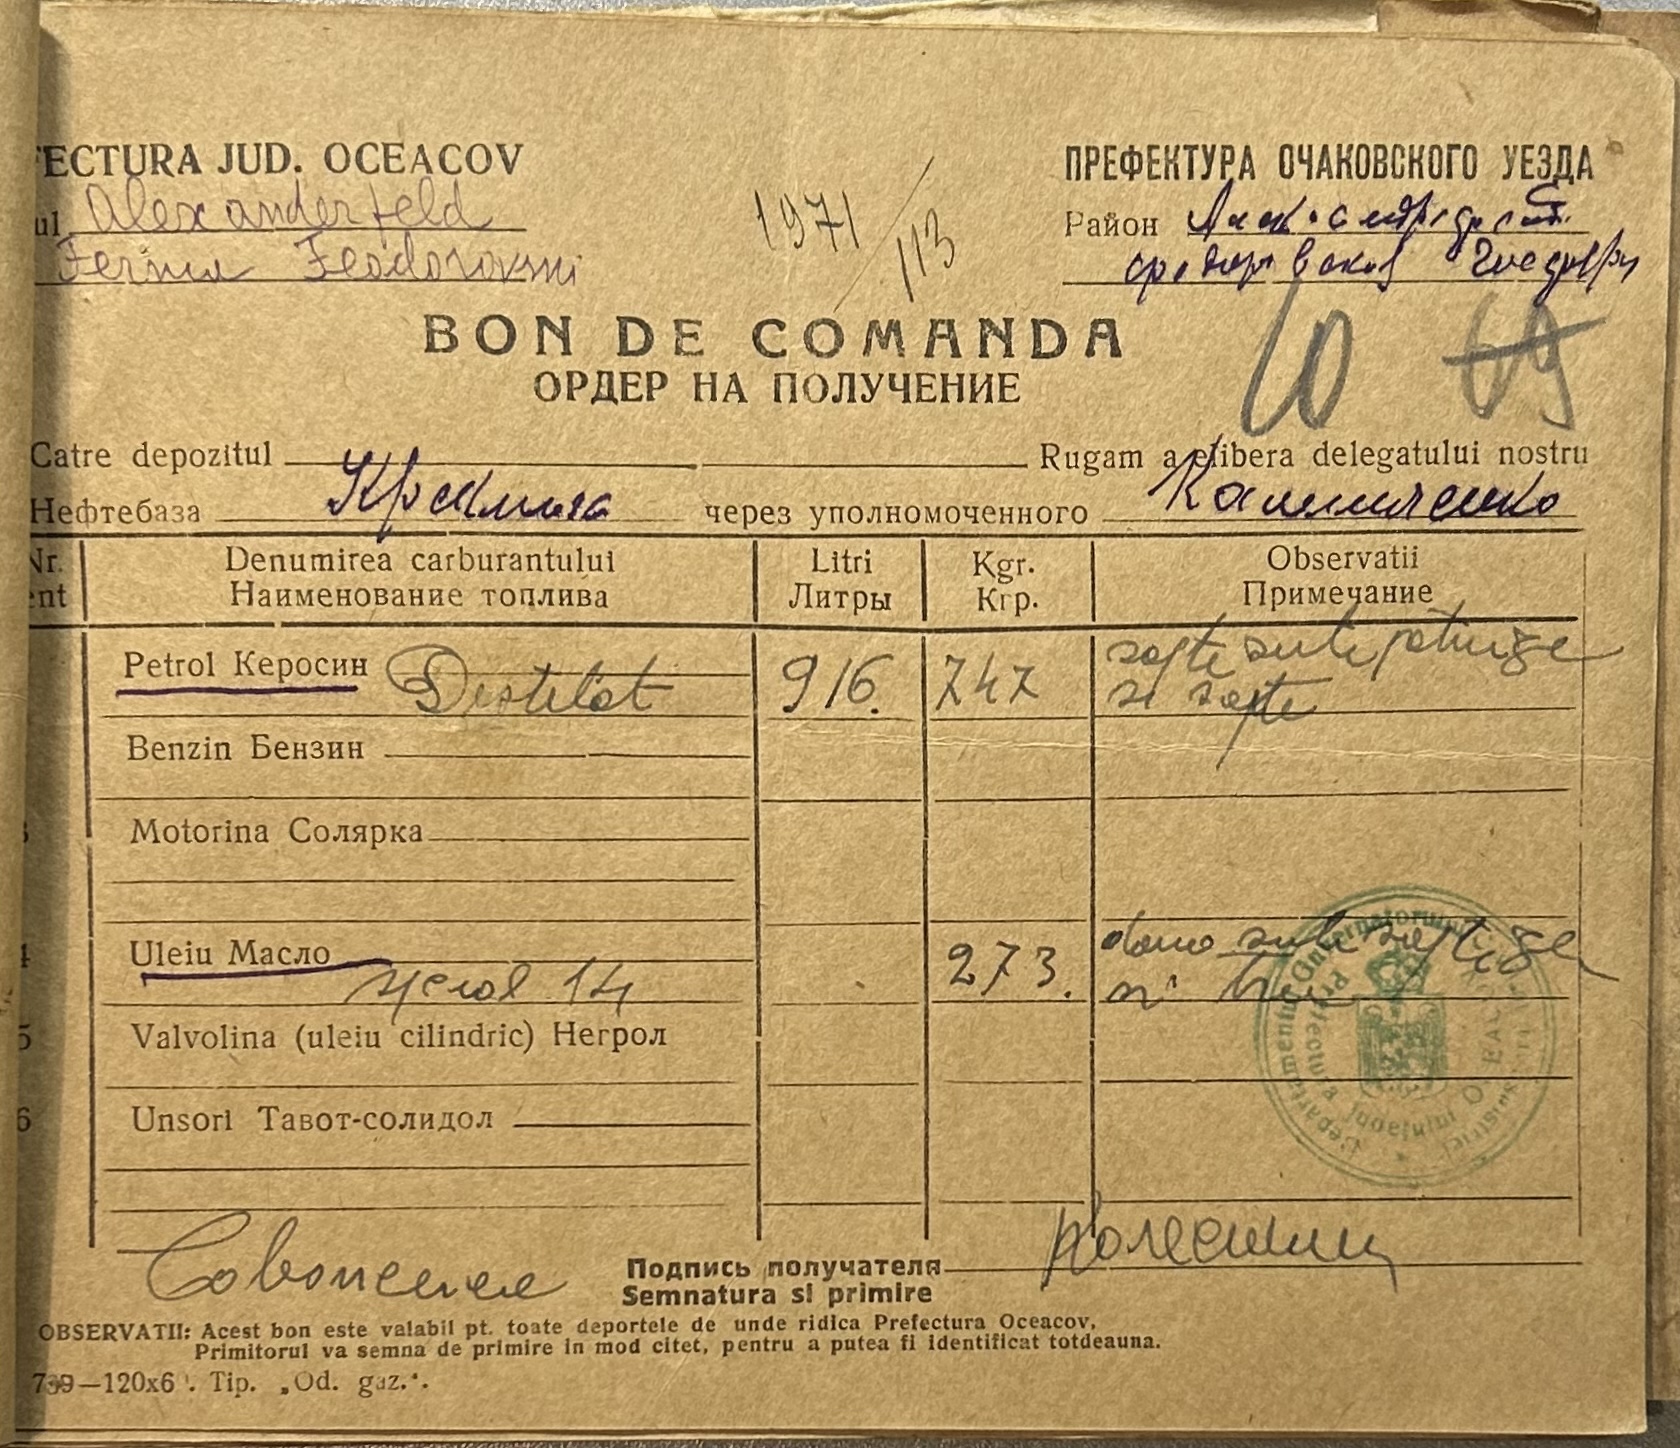 FECTURA JUD. OCEACOV
ПРЕФЕКТУРА ОЧАКОВСКОГО УЕЗДА
ul Alexanderfeld
1971/113
Район
Ferma Feodorovmi
BON DE COMANDA
ОРДЕР НА ПОЛУЧЕНИЕ
10 69
Catre depozitul
Rugam a elibera delegatului nostru
Нефтебаза
через уполномоченного Калиниченко
Nr.
ent
Denumirea carburantului
Наименование топлива
Litri
Литры
Kgr.
Кгр.
Observatii
Примечание
Petrol Керосин Destilat 916. 747 șapte sute patruze
si șapte
Benzin Бензин
3 Motorina Солярка
4 Uleiu Масло 273. doua sute șapteze
14 si trei
5 Valvolina (uleiu cilindric) Негрол
6 Unsori Тавот-солидол
Departamentul Guvernatorului
Prefectura Judeţului OCEACOV
Подпись получателя
Semnatura si primire
OBSERVATII: Acest bon este valabil pt. toate deportele de unde ridica Prefectura Oceacov,
Primitorul va semna de primire in mod citet, pentru a putea fi identificat totdeauna.
739—120x6 . Tip. „Od. gaz.“.